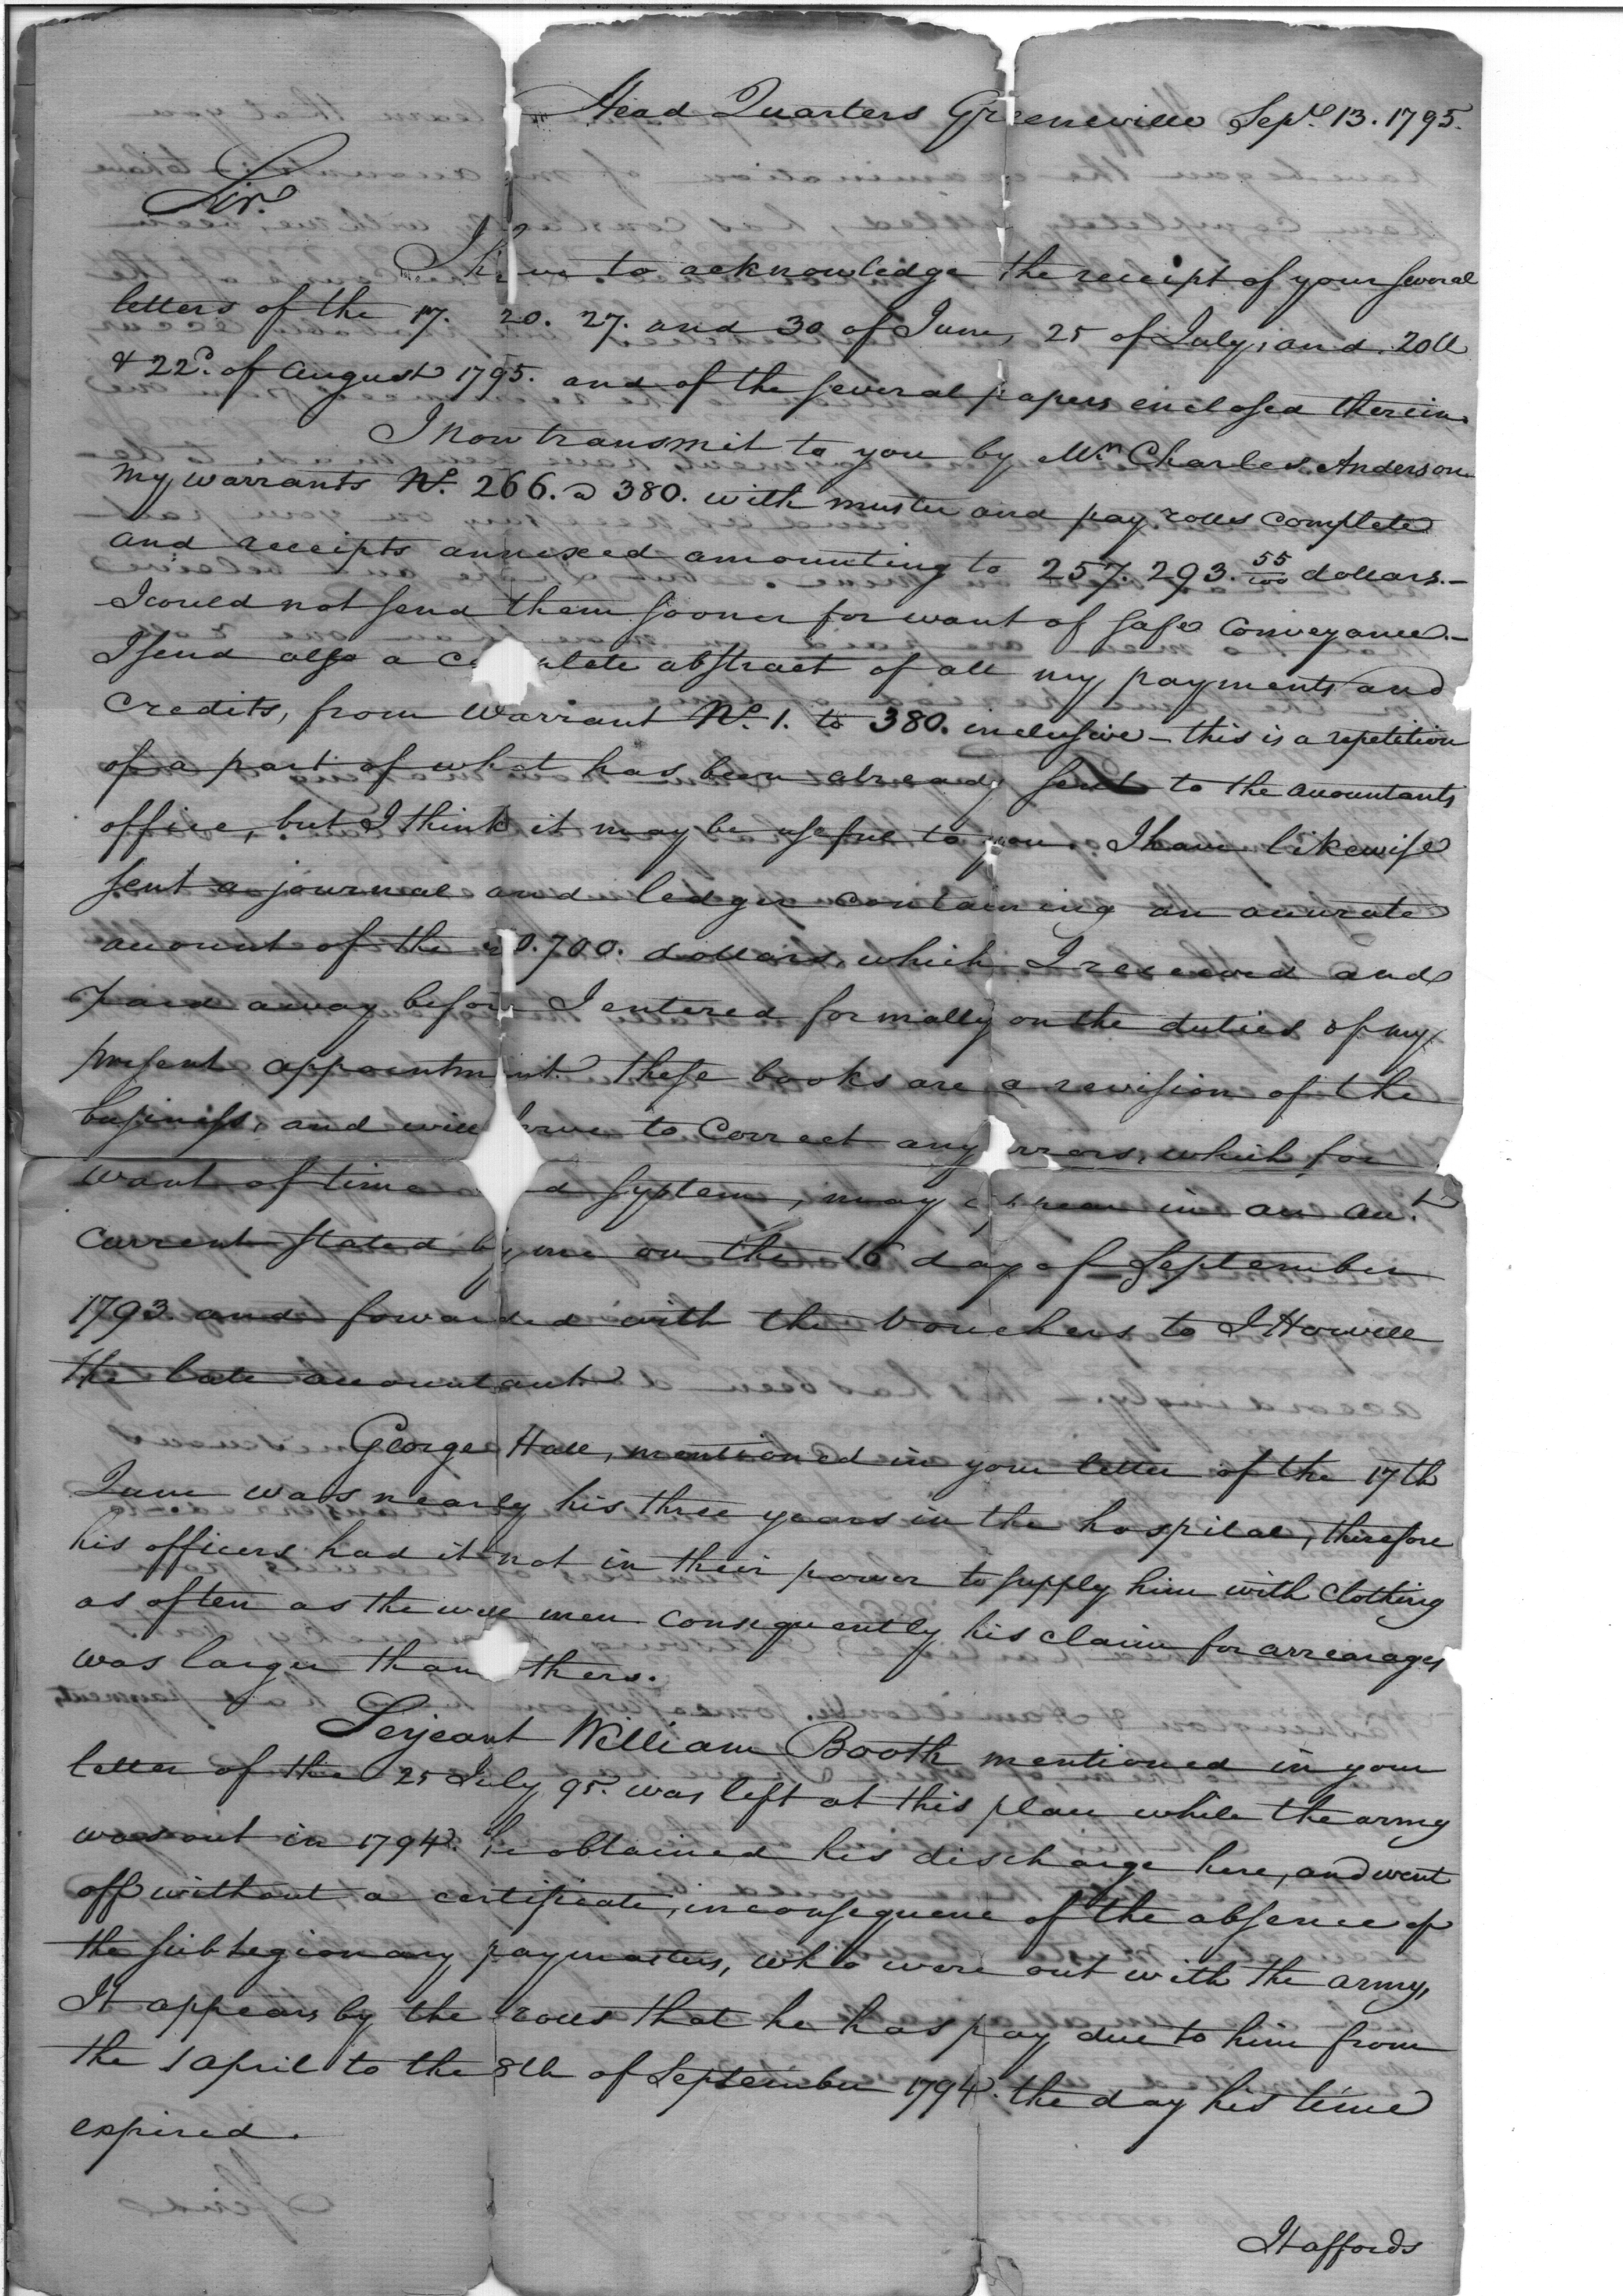 Head Quarters Greeneville Sept. 13. 1795.
Sir.
I have to acknowledge the receipt of your several
letters of the 17. 20. 27. and 30 of June, 25 of July, and 20th
& 22d. of August 1795. and of the several papers enclosed therein.
I now transmit to you by Mr. Charles Anderson
my warrants No. 266. a 380. with muster and pay rolls complete
and receipts annexed amounting to 257.293. 55/100 dollars.—
I could not send them sooner for want of safe conveyance.—
I send also a complete abstract of all my payments and
credits, from Warrant No. 1. to 380. inclusive — this is a repetition
of a part of what has been already sent to the accountants
office, but I think it may be useful to you. I have likewise
sent a journal and ledger containing an accurate
account of the 0.700. dollars, which I received and
paid away before I entered formally on the duties of my
present appointment. These books are a revision of the
business, and will serve to correct any errors, which for
want of time and system, may appear in an acct.
current stated by me on the 16 day of September
1793 and forwarded with the vouchers to J Howell
the late accountant
George Hall, mentioned in your letter of the 17th
June was nearly his three years in the hospital, therefore
his officers had it not in their power to supply him with clothing
as often as the well men consequently his claim for arrearages
was larger than others.
Serjeant William Booth mentioned in your
letter of the 25 July 95. was left at this place while the army
was out in 1794. he obtained his discharge here, and went
off without a certificate, in consequence of the absence of
the sublegionary paymasters, who were out with the army,
It appears by the rolls that he has pay due to him from
the 1 April to the 8th of September 1794. the day his time
expired.
It affords